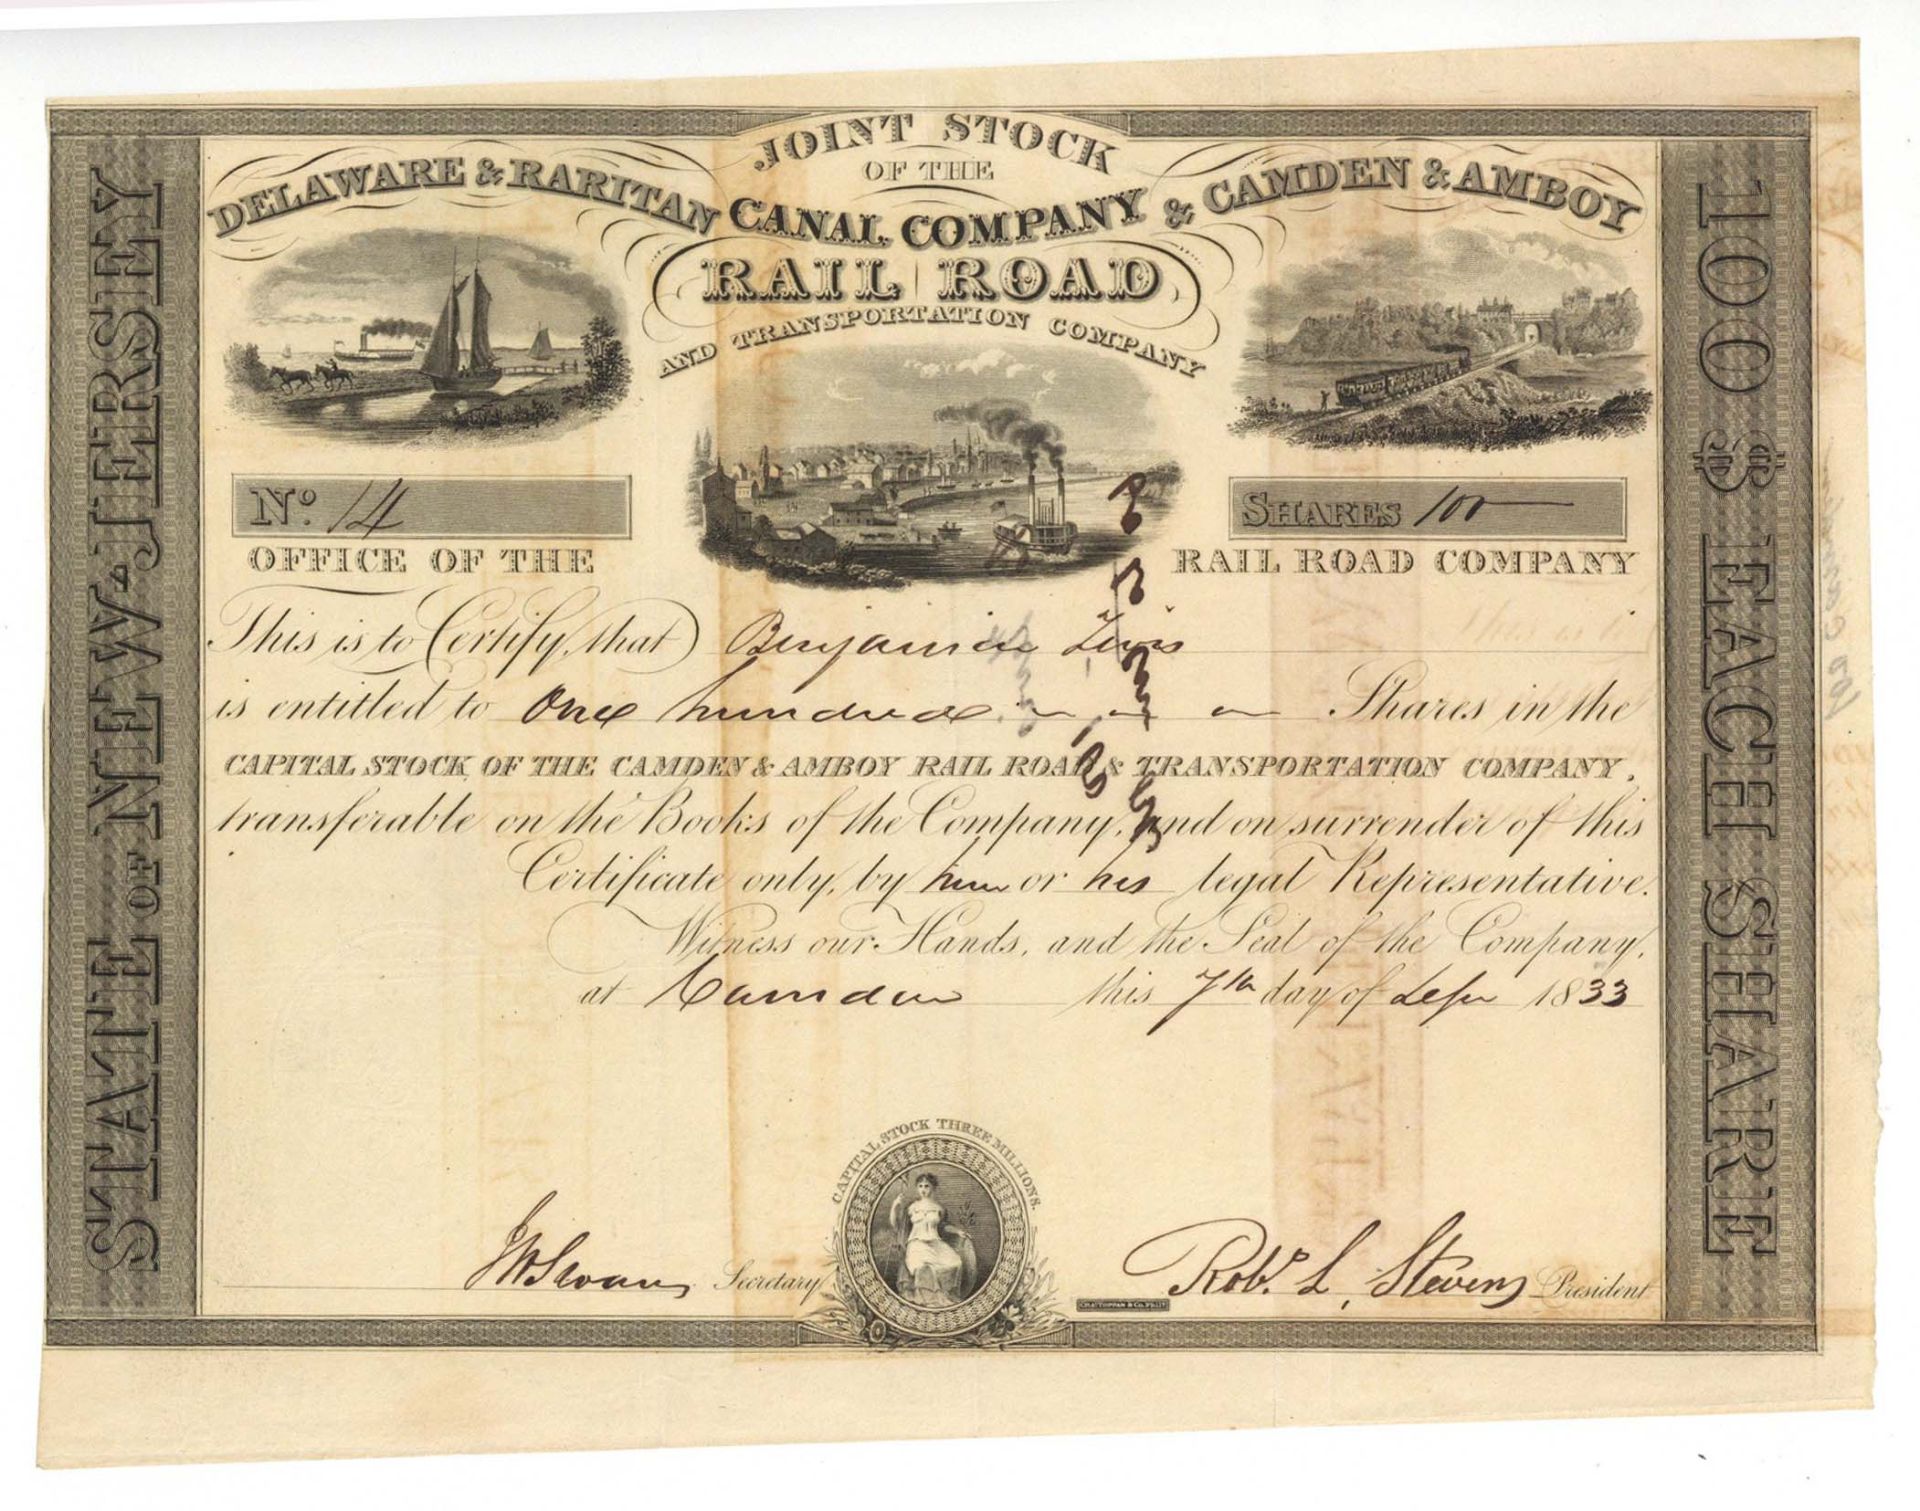 JOINT STOCK
OF THE
DELAWARE & RARITAN CANAL COMPANY & CAMDEN & AMBOY
RAIL ROAD
AND TRANSPORTATION COMPANY
STATE OF NEW-JERSEY
100 $ EACH SHARE
No. 14
SHARES 100
OFFICE OF THE RAIL ROAD COMPANY
This is to Certify, that Benjamin
is entitled to One hundred Shares in the
CAPITAL STOCK OF THE CAMDEN & AMBOY RAIL ROAD & TRANSPORTATION COMPANY,
transferable on the Books of the Company, and on surrender of this
Certificate only, by him or his legal Representative.
Witness our Hands, and the Seal of the Company,
at Camden this 7th day of Sepr 1833
CAPITAL STOCK THREE MILLIONS.
Secretary
Robt. L. Stevens President